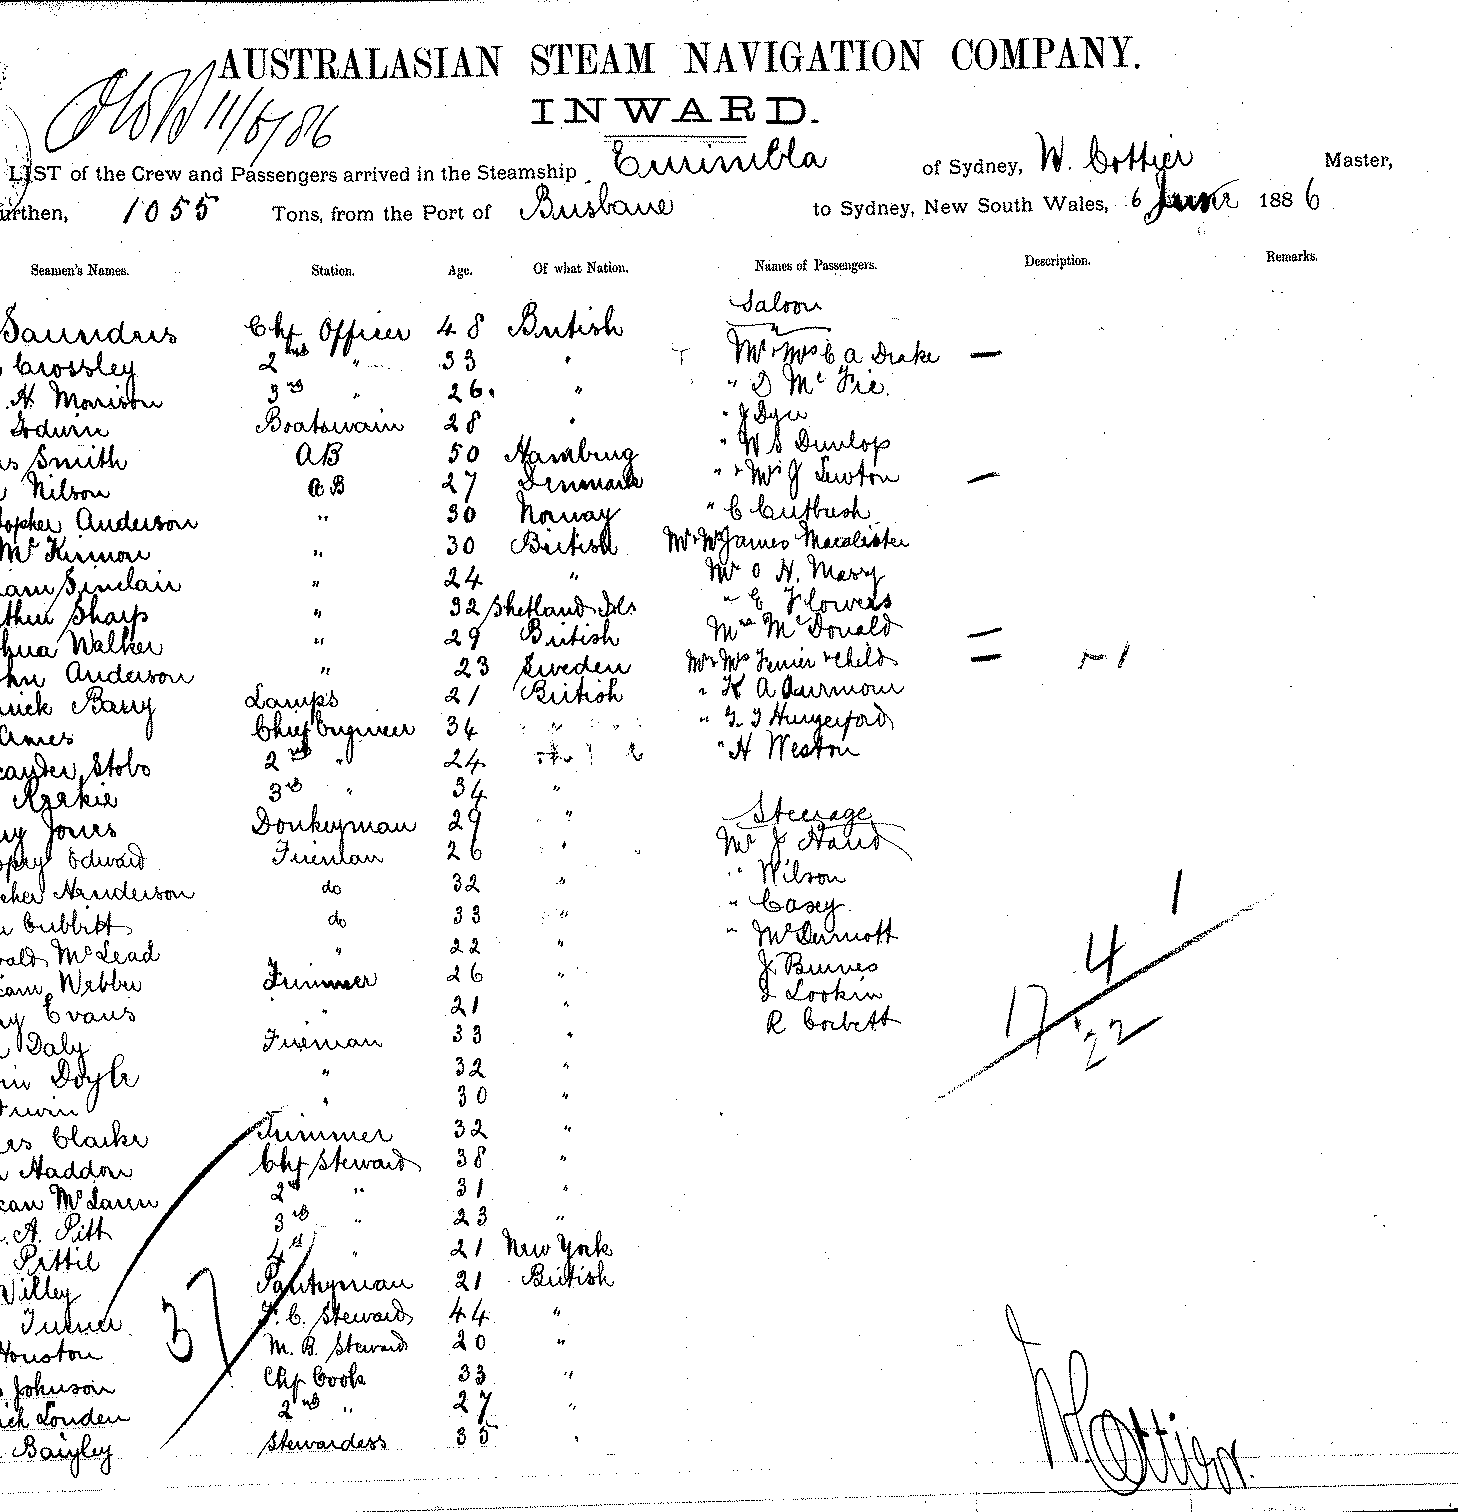 AUSTRALASIAN STEAM NAVIGATION COMPANY.
11/6/86
INWARD.
LIST of the Crew and Passengers arrived in the Steamship Eurimbla of Sydney, W. Cottier Master,
urthen, 1055 Tons, from the Port of Brisbane to Sydney, New South Wales, 6 June 1886
Seamen's Names. Station. Age. Of what Nation. Names of Passengers. Description. Remarks.
Saloon
Saunders Chf Officer 48 British
Crossley 2nd " 33 " Mr & Mrs C A Drake —
H Morrison 3rd " 26 " " D McFie
Godwin Boatswain 28 " " J Dyer
Smith AB 50 Hamburg " W S Dunlop
Nilson AB 27 Denmark " & Mrs J Newton —
topher Anderson " 30 Norway " C Cutbush
McKinnon " 30 British Mr & Mrs James Macalister
iam Sinclair " 24 " Mr O H Massy
Sharp " 32 Shetland Isls " E Flowers
hua Walker " 29 British Mrs McDonald —
hn Anderson " 23 Sweden Mr & Mrs & Child = 1
rick Barry Lamps 21 British " K A
ames Chief Engineer 34 " " Hungerford
xander Stobo 2nd " 24 " H Weston
3rd " 34 "
Jones Donkeyman 29 " Steerage
Edward Fireman 26 " Mr J Hand
Henderson do 32 " " Wilson
Cubbitt do 33 " " Casey
McLead " 22 " " McDermott
iam Webber Trimmer 26 " J Burnes
Evans " 21 " J Lookin
Daly Fireman 33 " R Corbett
Doyle " 32 "
Irwin " 30 "
1
4
17
22
es Clarke Trimmer 32 "
Haddon Chf Steward 38 "
can McLaren 2nd " 31 "
A. Pitt 3rd " 23 "
Pettil 4th " 21 New York
Willey Pantryman 21 British
Turner F. C. Steward 44 "
37
Houston M. B. Steward 20 "
Johnson Chf Cook 33 "
Louden 2nd " 27 "
Baigley Stewardess 35 "
W Cottier